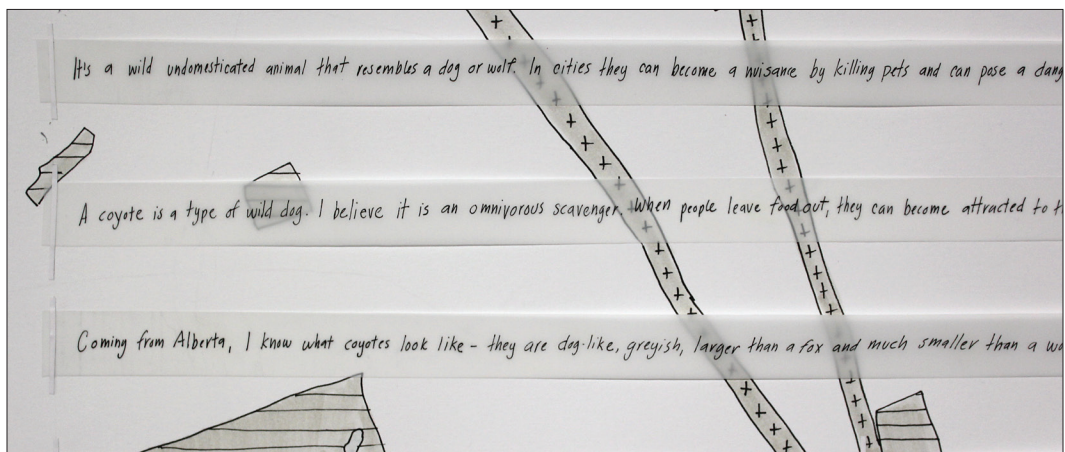 It's a wild undomesticated animal that resembles a dog or wolf. In cities they can become a nuisance by killing pets and can pose a
A coyote is a type of wild dog. I believe it is an omnivorous scavenger. When people leave food out, they can become attracted to
Coming from Alberta, I know what coyotes look like - they are dog-like, greyish, larger than a fox and much smaller than a